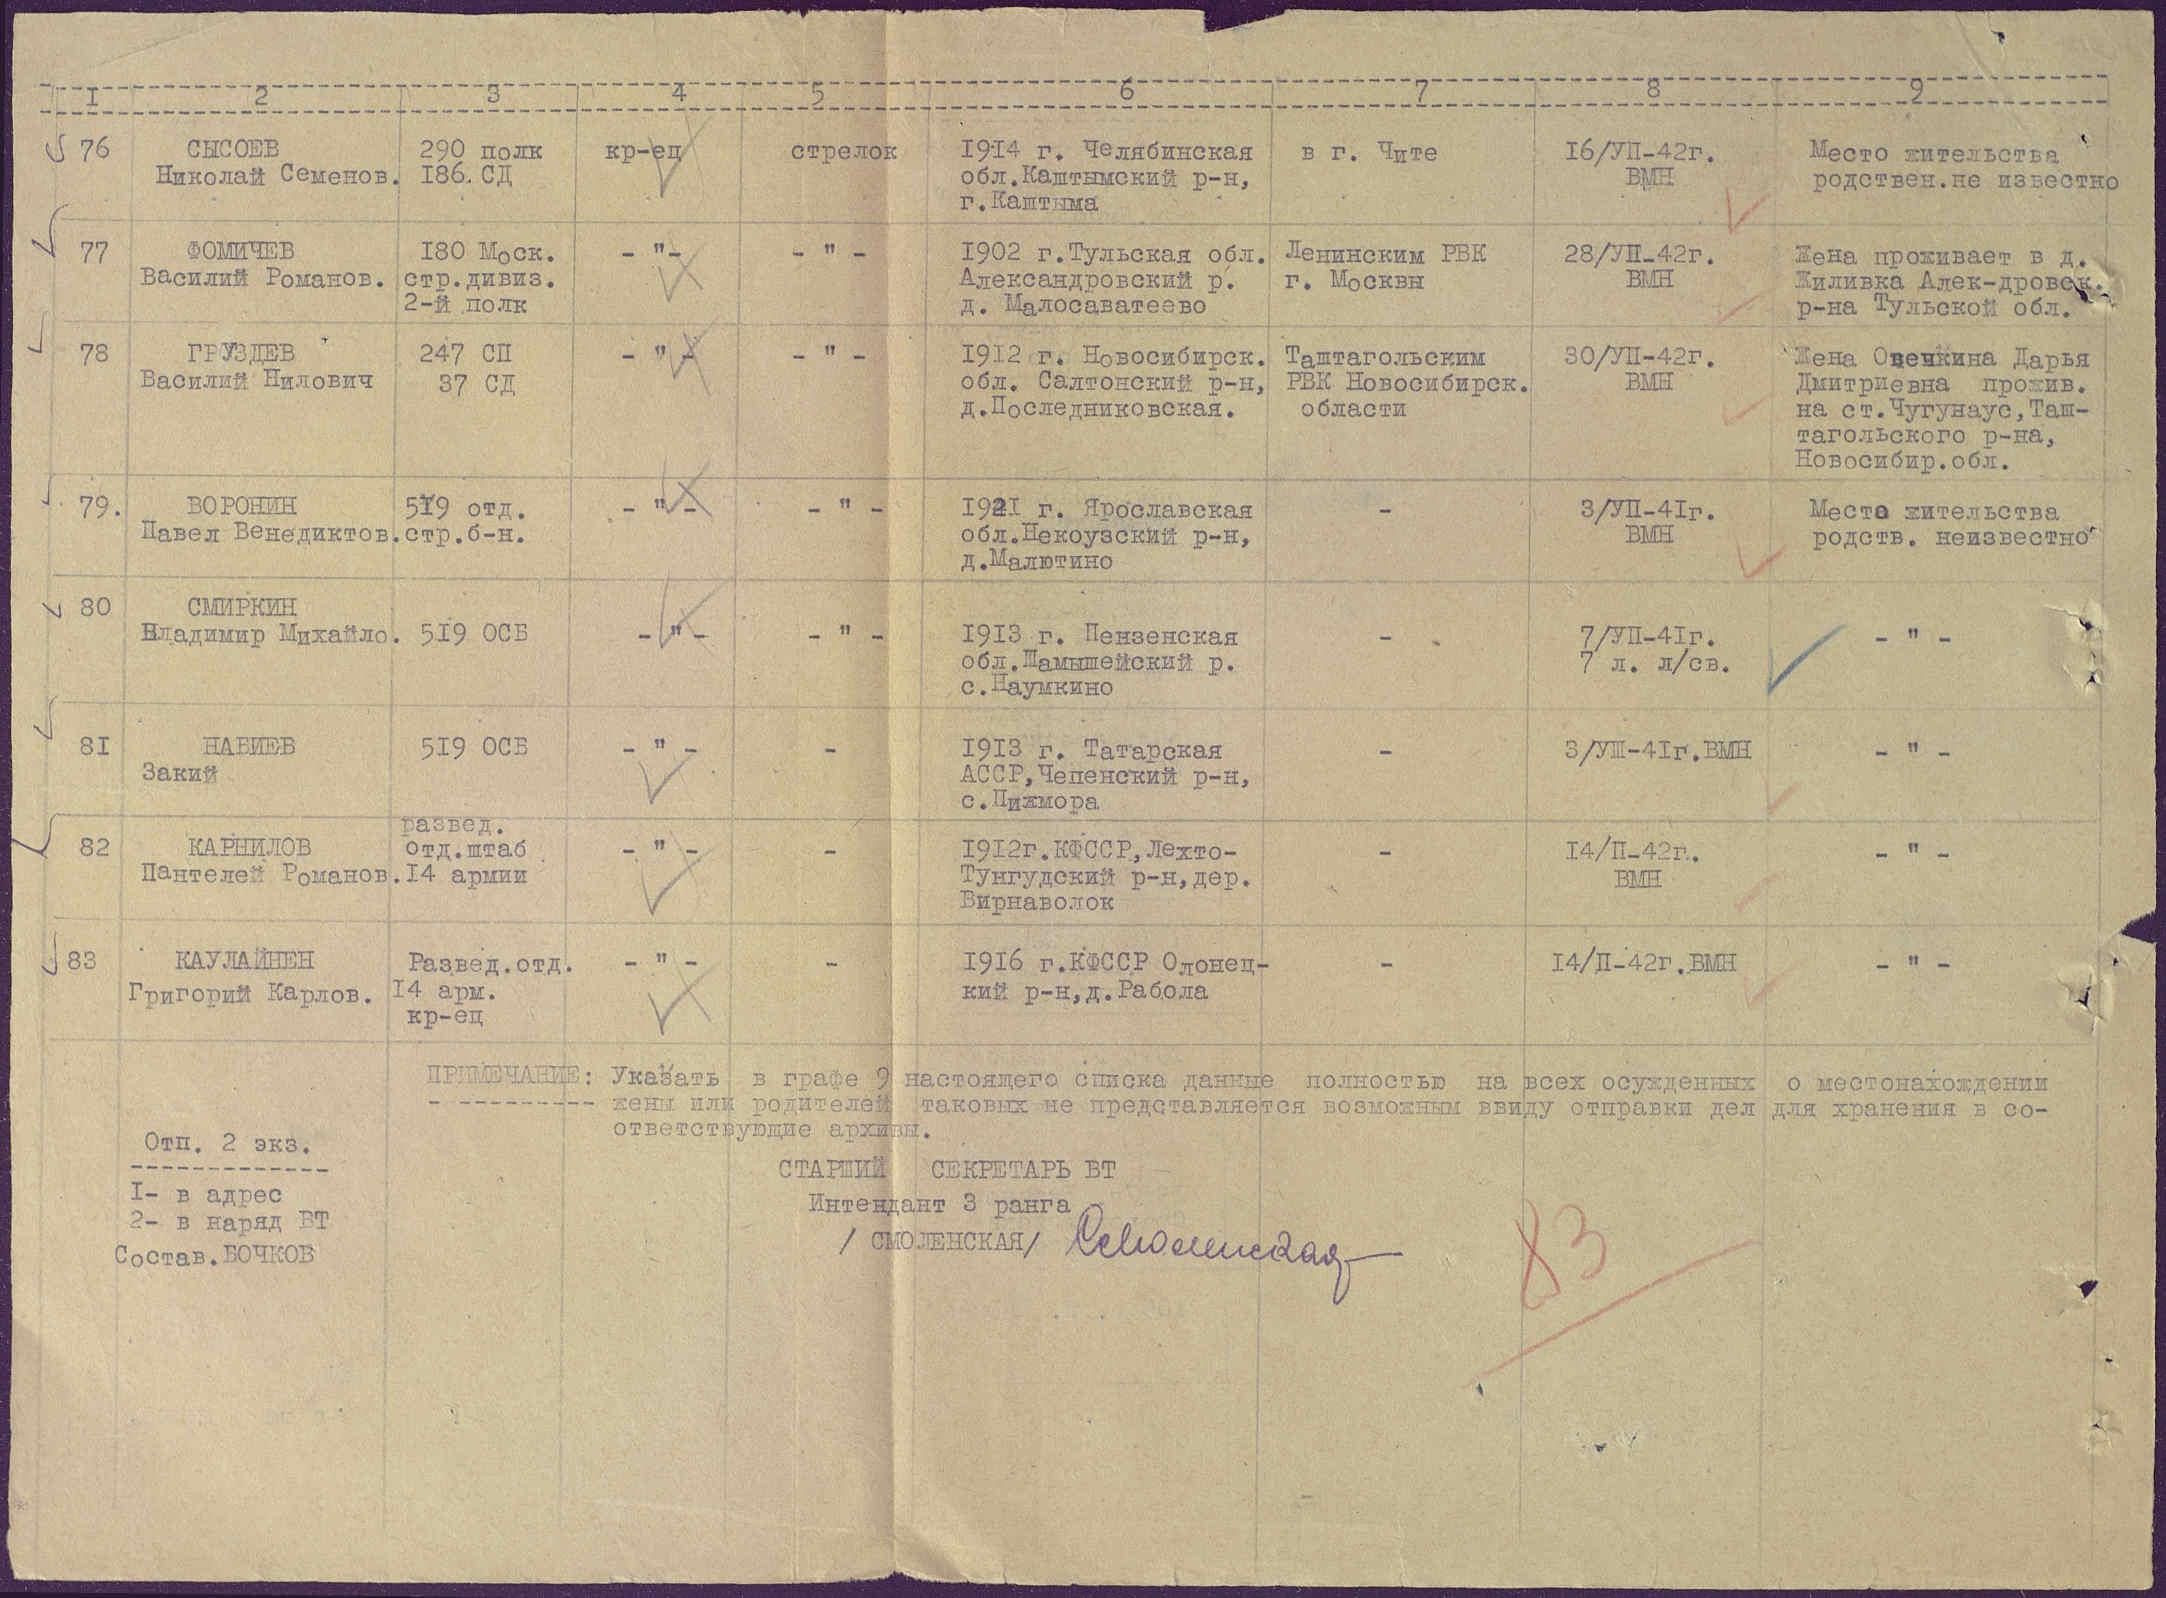 I 2 3 4 5 6 7 8 9
76 СЫСОЕВ 290 полк кр-ец стрелок 1914 г. Челябинская в г. Чите 16/УП-42г. Место жительства
Николай Семенов. 186. СД обл.Каштымский р-н, ВМН родствен.не известно
г.Каштыма
77 ФОМИЧЕВ 180 Моск. - " - - " - 1902 г.Тульская обл. Ленинским РВК 28/УП-42г. Жена проживает в д.
Василий Романов. стр.дивиз. Александровский р. г. Москвы ВМН Жиливка Алек-дровск.
2-й полк д. Малосаватеево р-на Тульской обл.
78 ГРУЗДЕВ 247 СП - " - - " - 1912 г. Новосибирск. Таштагольским 30/УП-42г. Жена Овечкина Дарья
Василий Нилович 37 СД обл. Салтонский р-н, РВК Новосибирск. ВМН Дмитриевна прожив.
д.Последниковская. области на ст.Чугунаус,Таш-
тагольского р-на,
Новосибир.обл.
79. ВОРОНИН 519 отд. - " - - " - 1921 г. Ярославская - 3/УП-41г. Место жительства
Павел Венедиктов. стр.б-н. обл.Некоузский р-н, ВМН родств. неизвестно
д.Малютино
80 СМИРКИН
Владимир Михайло. 519 ОСБ - " - - " - 1913 г. Пензенская - 7/УП-41г. - " -
обл.Шамышейский р. 7 л. л/св.
с.Наумкино
81 НАБИЕВ 519 ОСБ - " - - 1913 г. Татарская - 3/УШ-41г.ВМН - " -
Закий АССР,Чепенский р-н,
с.Пижмора
развед.
82 КАРНИЛОВ отд.штаб - " - - 1912г.КФССР,Лехто- - 14/П-42г. - " -
Пантелей Романов. 14 армии Тунгудский р-н,дер. ВМН
Вирнаволок
83 КАУЛАЙНЕН Развед.отд. - " - - 1916 г.КФССР Олонец- - 14/П-42г.ВМН - " -
Григорий Карлов. 14 арм. кий р-н,д.Рабола
кр-ец
ПРИМЕЧАНИЕ: Указать в графе 9 настоящего списка данные полностью на всех осужденных о местонахождении
жены или родителей таковых не представляется возможным ввиду отправки дел для хранения в со-
ответствующие архивы.
Отп. 2 экз.
1- в адрес
2- в наряд ВТ
Состав.БОЧКОВ
СТАРШИЙ СЕКРЕТАРЬ ВТ
Интендант 3 ранга
/ СМОЛЕНСКАЯ/ Смоленская
83